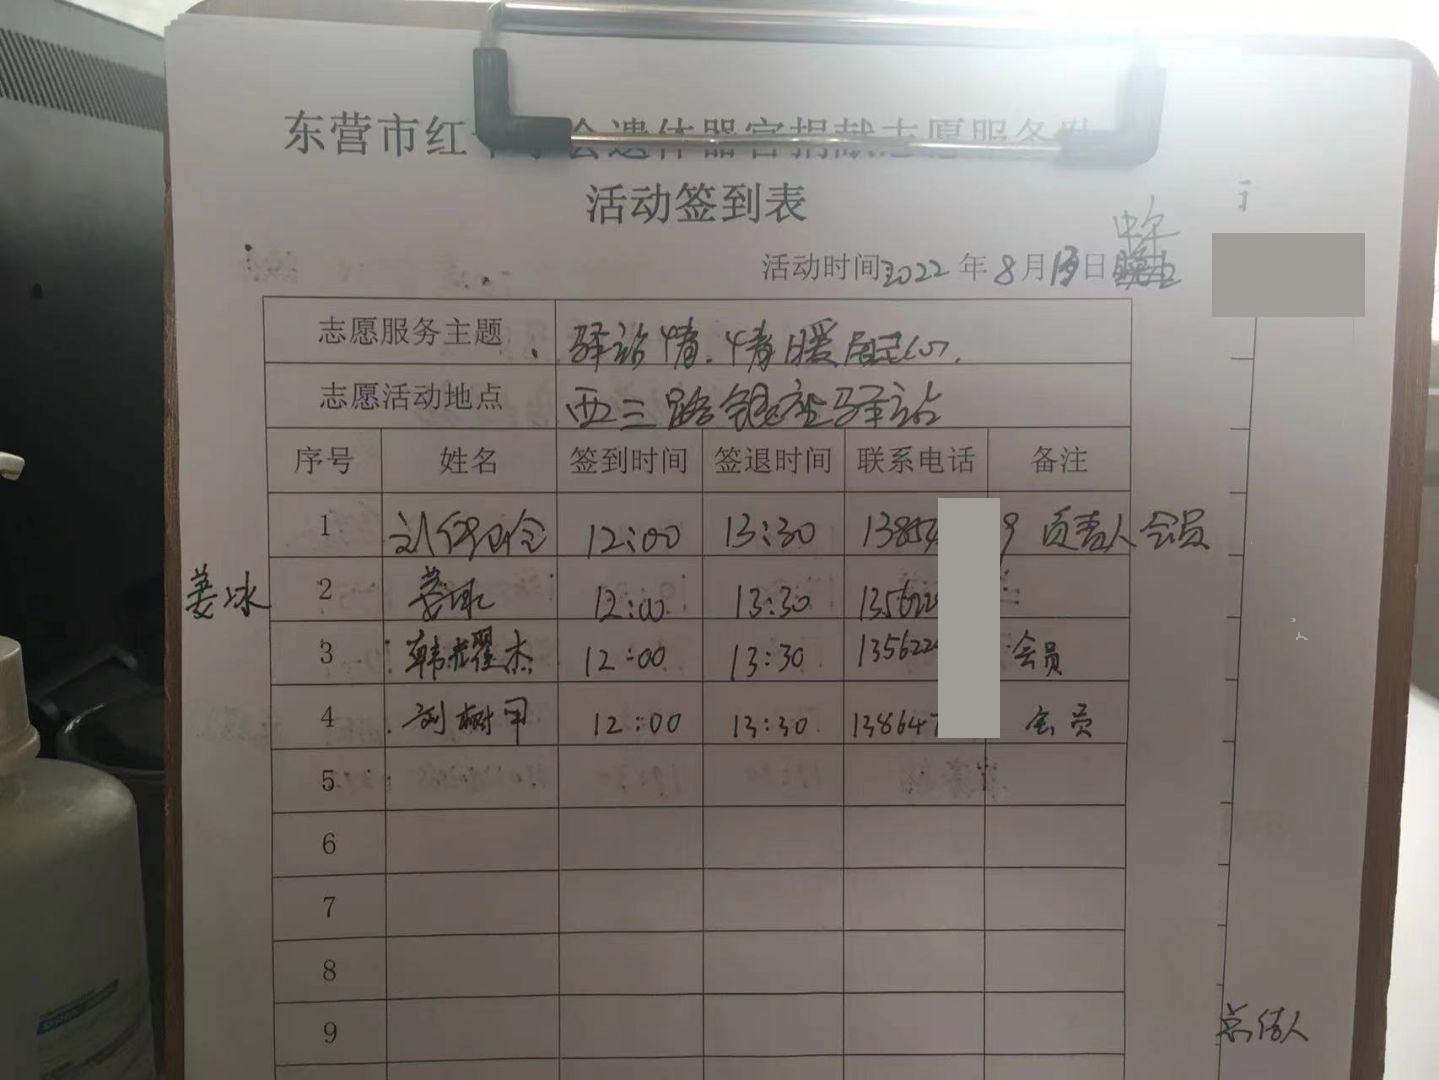 东营市红十字会遗体器官捐献志愿服务队
活动签到表
中午
活动时间2022年8月13日
志愿服务主题 驿站情.情暖居民心.
志愿活动地点 西三路银座驿站
序号 姓名 签到时间 签退时间 联系电话 备注
1 12:00 13:30 13854 9 负责人会员
姜冰 2 姜冰 12:00 13:30 135622
3 韩耀杰 12:00 13:30 135622 会员
4 刘树甲 12:00 13:30 13864 会员
5
6
7
8
9